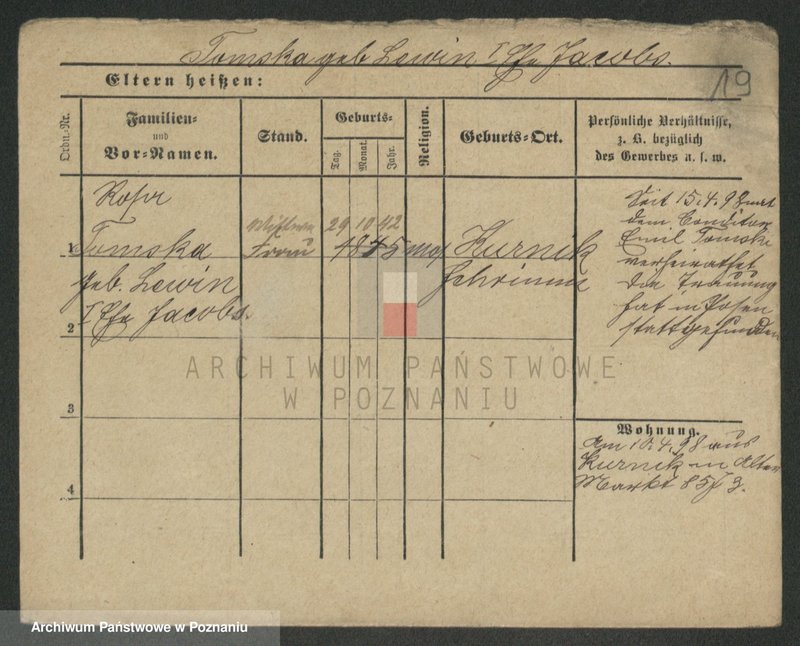 Tomska geb Lewin I Ehe Jacobs.
19
Eltern heißen:
Ordn.-Nr.
Familien-
und
Vor-Namen.
Stand.
Geburts-
Tag.
Monat.
Jahr.
Religion.
Geburts-Ort.
Persönliche Verhältnisse,
z. B. bezüglich
des Gewerbes u. s. w.
Rosa
29 10 42
1 Tomska Frau 1845 mos Kurnik
geb. Lewin Schrimm
I Ehe Jacobs.
2
3
4
Seit 15.4.98 mit
dem Conditor
Emil Tomski
verheirathet
Die Trauung
hat in Posen
stattgefunden
Wohnung.
Am 10.4.98 aus
Kurnik in Alter
Markt 85
ARCHIWUM PAŃSTWOWE
W POZNANIU
Archiwum Państwowe w Poznaniu